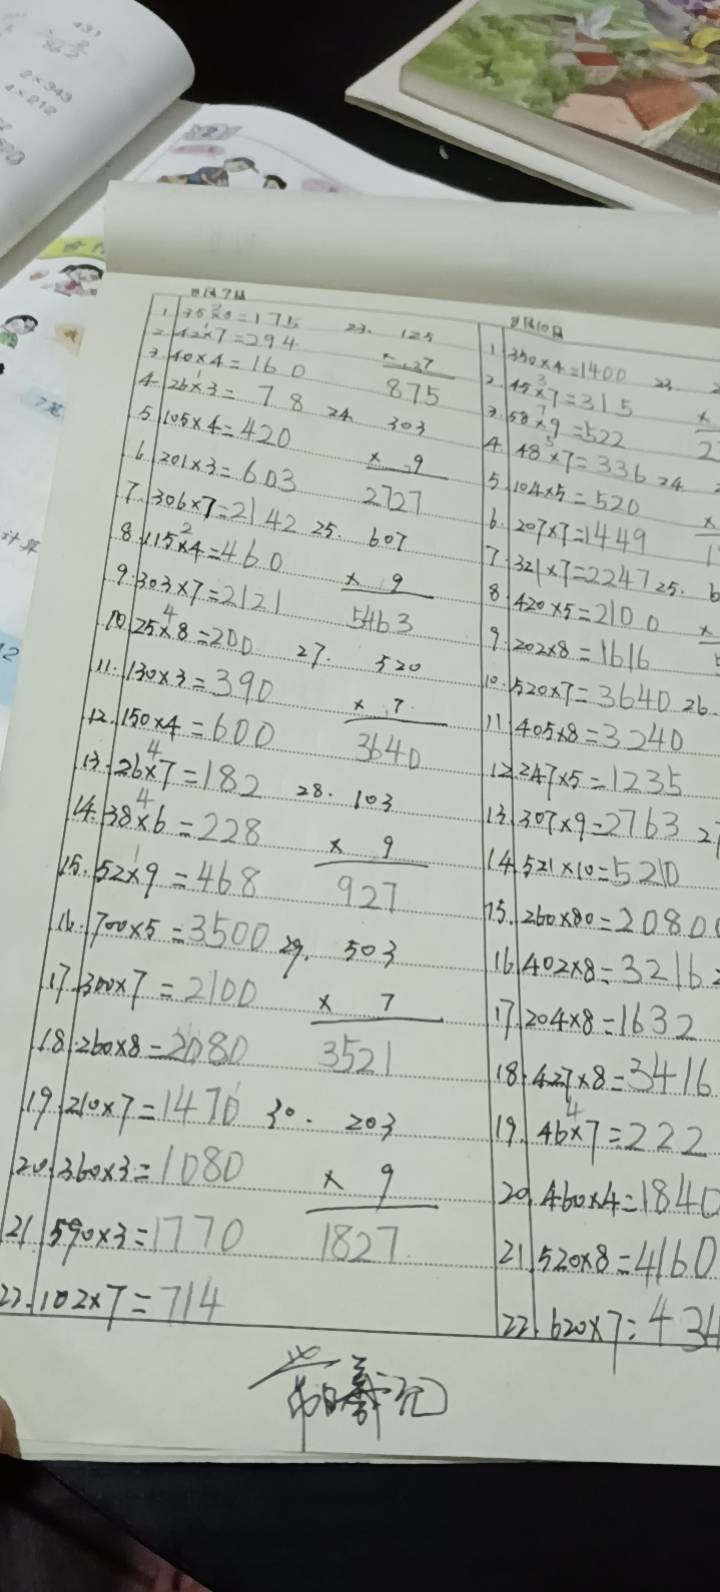 433
2×343
4×212
计算
8月7日
1. 35×5=175
2. 42×7=294
3. 40×4=160
4. 26×3=78
5. 105×4=420
6. 201×3=603
7. 306×7=2142
8. 115×4=460
9. 303×7=2121
10. 25×8=200
11. 130×3=390
12. 150×4=600
13. 26×7=182
14. 38×6=228
15. 52×9=468
16. 700×5=3500
17. 300×7=2100
18. 260×8=2080
19. 210×7=1470
20. 360×3=1080
21. 590×3=1770
22. 102×7=714
23. 125
875
24. 303
× 9
2727
25. 607
× 9
5463
27. 520
× 7
3640
28. 103
× 9
927
29. 503
× 7
3521
30. 203
× 9
1827
8月10日
1. 350×4=1400
2. 45×7=315
3. 58×9=522
4. 48×7=336
5. 104×5=520
6. 207×7=1449
7. 321×7=2247
8. 420×5=2100
9. 202×8=1616
10. 520×7=3640
11. 405×8=3240
12. 247×5=1235
13. 307×9=2763
14. 521×10=5210
15. 260×80=2080
16. 402×8=3216
17. 204×8=1632
18. 427×8=3416
19. 46×7=222
20. 460×4=1840
21. 520×8=4160
22. 620×7=434
23.
24
25.
26.